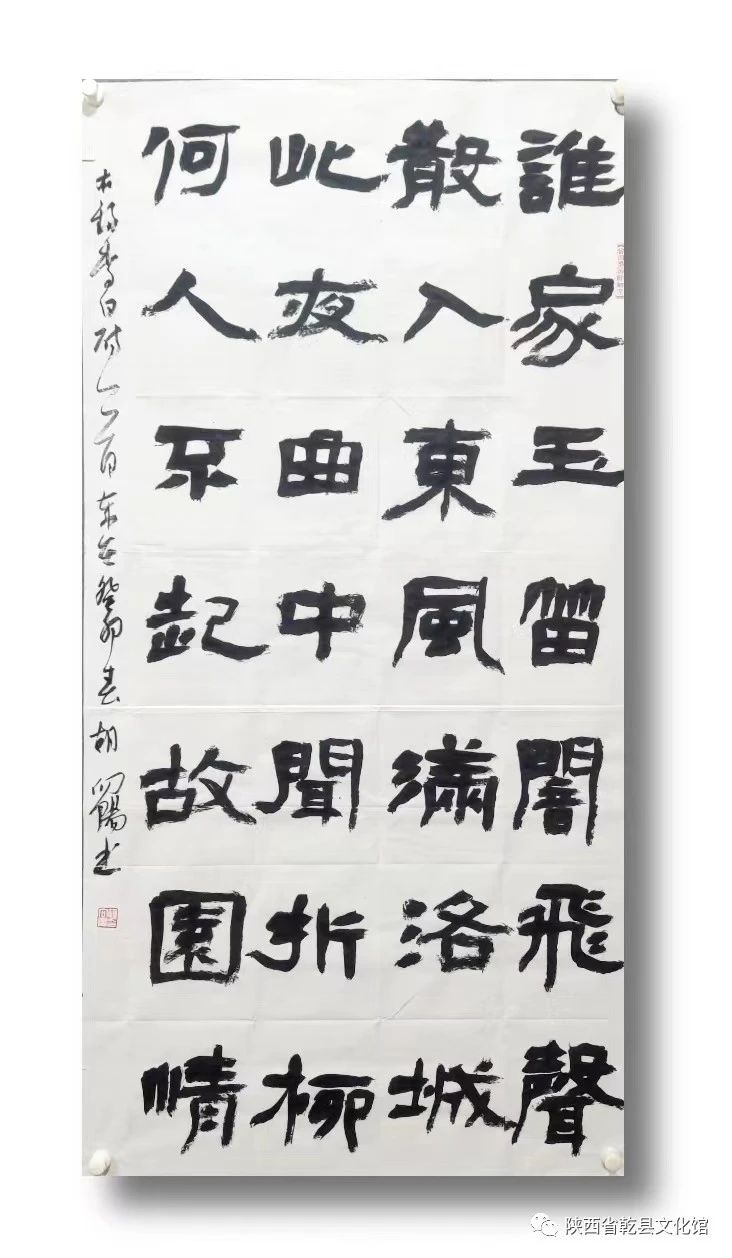 誰家玉笛闇飛聲
散入東風滿洛城
此夜曲中聞折柳
何人不起故園情
李白诗一首岁在癸卯春胡向陽书
陕西省乾县文化馆